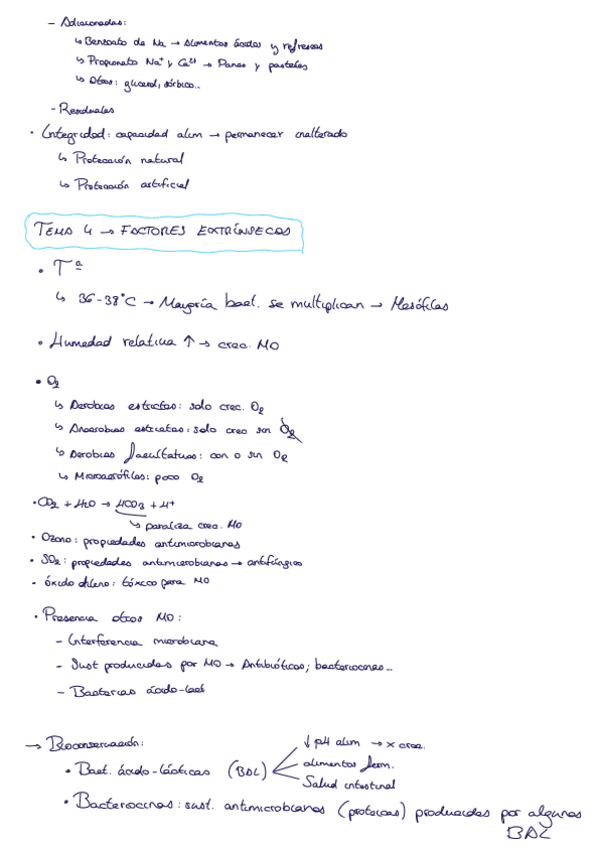 - Adicionadas:
↳ Benzoato de Na → Alimentos ácidos y refrescos
↳ Propionato Na⁺ y Ca²⁺ → Panes y pasteles
↳ Otros: glicerol, sórbico...
- Residuales
· Integridad: capacidad alim → permanecer inalterado
↳ Protección natural
↳ Protección artificial
TEMA 4 → FACTORES EXTRÍNSECOS
• Tª
↳ 36-38°C → Mayoría bact. se multiplican → Mesófilas
• Humedad relativa ↑ → crec. MO
• O₂
↳ Aerobias estrictas: solo crec. O₂
↳ Anaerobias estrictas: solo crec sin O₂
↳ Aerobias facultativas: con o sin O₂
↳ Microaerófilas: poco O₂
• CO₂ + H₂O → HCO₃ + H⁺
↳ paraliza crec. MO
• Ozono: propiedades antimicrobianas
• SO₂: propiedades antimicrobianas → antifúngico
- óxido etileno: tóxico para MO
• Presencia otros MO:
- Interferencia microbiana
- Sust producidas por MO → Antibióticos; bacteriocinas...
- Bacterias ácido-lact
→ Bioconservación:
• Bact. ácido-lácticas (BAL)
↓ pH alim → x crec.
alimentos ferm.
Salud intestinal
• Bacteriocinas: sust. antimicrobianas (proteicas) producidas por algunas
BAL